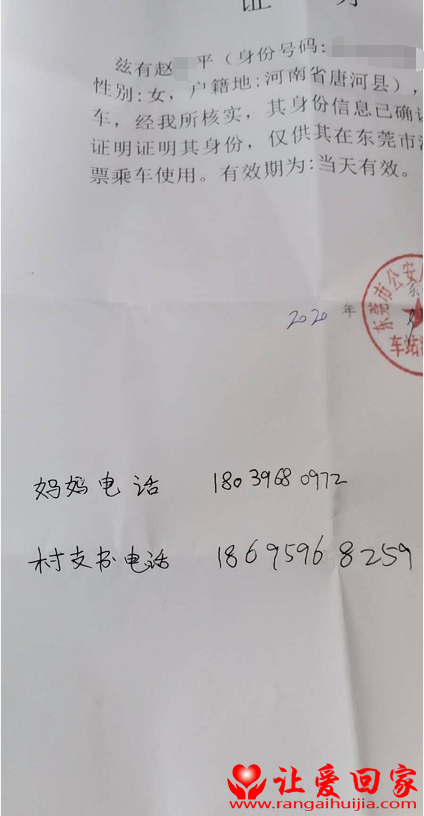 兹有赵 平（身份号码:
性别:女，户籍地:河南省唐河县），
车，经我所核实，其身份信息已确认
证明证明其身份，仅供其在东莞市
票乘车使用。有效期为:当天有效。
东莞市公安
2020 年
车站
妈妈电话 18039680972
村支书电话 18695968259
让爱回家
www.rangaihuijia.com